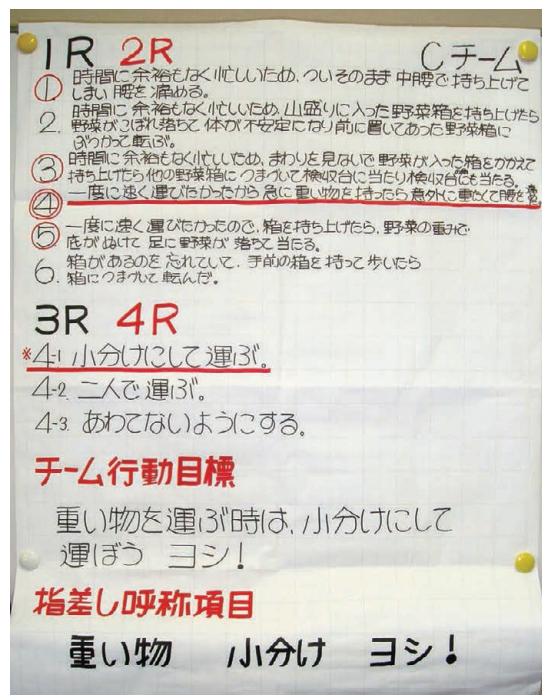 1R 2R Cチーム
① 時間に余裕もなく忙しいため、ついそのまま中腰で持ち上げて
しまい腰を痛める。
2. 時間に余裕もなく忙しいため、山盛りに入った野菜箱を持ち上げたら
野菜がこぼれ落ちて体が不安定になり前に置いてあった野菜箱に
ぶつかって転ぶ。
③ 時間に余裕もなく忙しいため、まわりを見ないで野菜が入った箱をかかえて
持ち上げたら他の野菜箱につまづいて検収台に当たり検収台にも当たる。
④ 一度に速く運びたかったから急に重い物を持ったら意外に重たくて腰を
⑤ 一度に速く運びたかったので、箱を持ち上げたら、野菜の重みで
底がぬけて足に野菜が落ちて当たる。
6. 箱があるのを忘れていて、手前の箱を持って歩いたら
箱につまづいて転んだ。
3R 4R
※4-1 小分けにして運ぶ。
4-2. 二人で運ぶ。
4-3. あわてないようにする。
チーム行動目標
重い物を運ぶ時は、小分けにして
運ぼう ヨシ!
指差し呼称項目
重い物 小分け ヨシ!